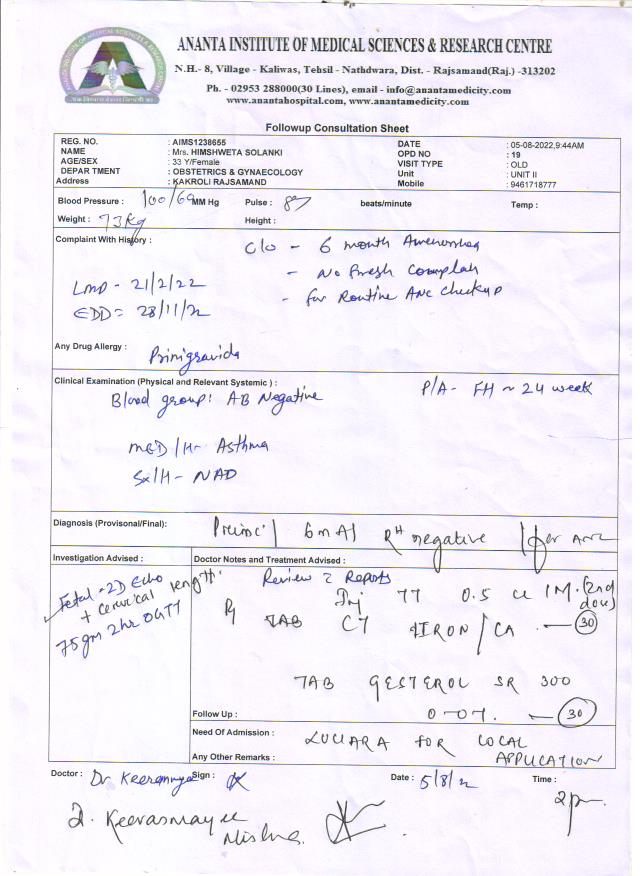 ANANTA INSTITUTE OF MEDICAL SCIENCES & RESEARCH CENTRE
N.H.- 8, Village - Kaliwas, Tehsil - Nathdwara, Dist. - Rajsamand(Raj.) -313202
Ph. - 02953 288000(30 Lines), email - info@anantamedicity.com
www.anantahospital.com, www.anantamedicity.com
Followup Consultation Sheet
REG. NO. : AIMS1238655 DATE : 05-08-2022,9:44AM
NAME : Mrs. HIMSHWETA SOLANKI OPD NO : 19
AGE/SEX : 33 Y/Female VISIT TYPE : OLD
DEPAR TMENT : OBSTETRICS & GYNAECOLOGY Unit : UNIT II
Address : KAKROLI RAJSAMAND Mobile : 9461718777
Blood Pressure : 100/60 MM Hg Pulse : 87 beats/minute Temp :
Weight : 73 kg Height :
Complaint With History : C/o - 6 month Amenorrhea
- No fresh Complain
LMP - 21/2/22 - for Routine ANC Checkup
EDD = 28/11/22
Any Drug Allergy : Primigravida
Clinical Examination (Physical and Relevant Systemic ) : P/A - FH ~ 24 week
Blood group: AB Negative
MED/H- Asthma
Sx/H - NAD
Diagnosis (Provisonal/Final): 6mA/ Rh negative / for ANC
Investigation Advised : Doctor Notes and Treatment Advised :
Fetal - 2D Echo
+ Cervical length
75gm 2hr OGTT
Review c Reports
Inj TT 0.5 cc IM. (2nd dose)
TAB CT IRON/CA — 30
TAB GESTEROL SR 300
Follow Up : — 30
Need Of Admission : FOR LOCAL
APPLICATION
Any Other Remarks :
Doctor : Dr Keeramaya Sign : Date : 5/8/22 Time :
2pm
Dr. Keerasmayee
Mishra